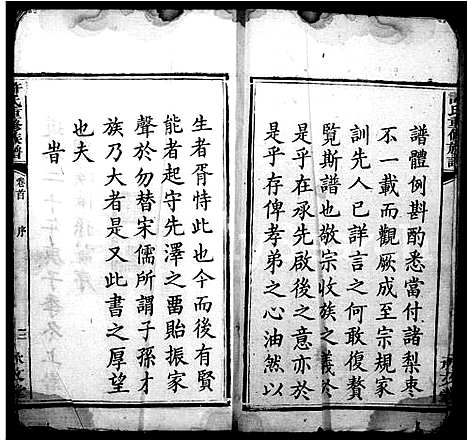 譜體例斟酌悉當付諸梨枣
不一載而觀厥成至宗規家
訓先人已詳言之何敢復贅
覧斯譜也敬宗收族之義於
是乎在承先啟後之意亦於
是乎存俾孝弟之心油然以
生者胥恃此也今而後有賢
能者起守先澤之畱貽振家
聲於勿替宋儒所謂子孫才
族乃大者是又此書之厚望
也夫
旹
許氏重修族譜
卷首
序
三